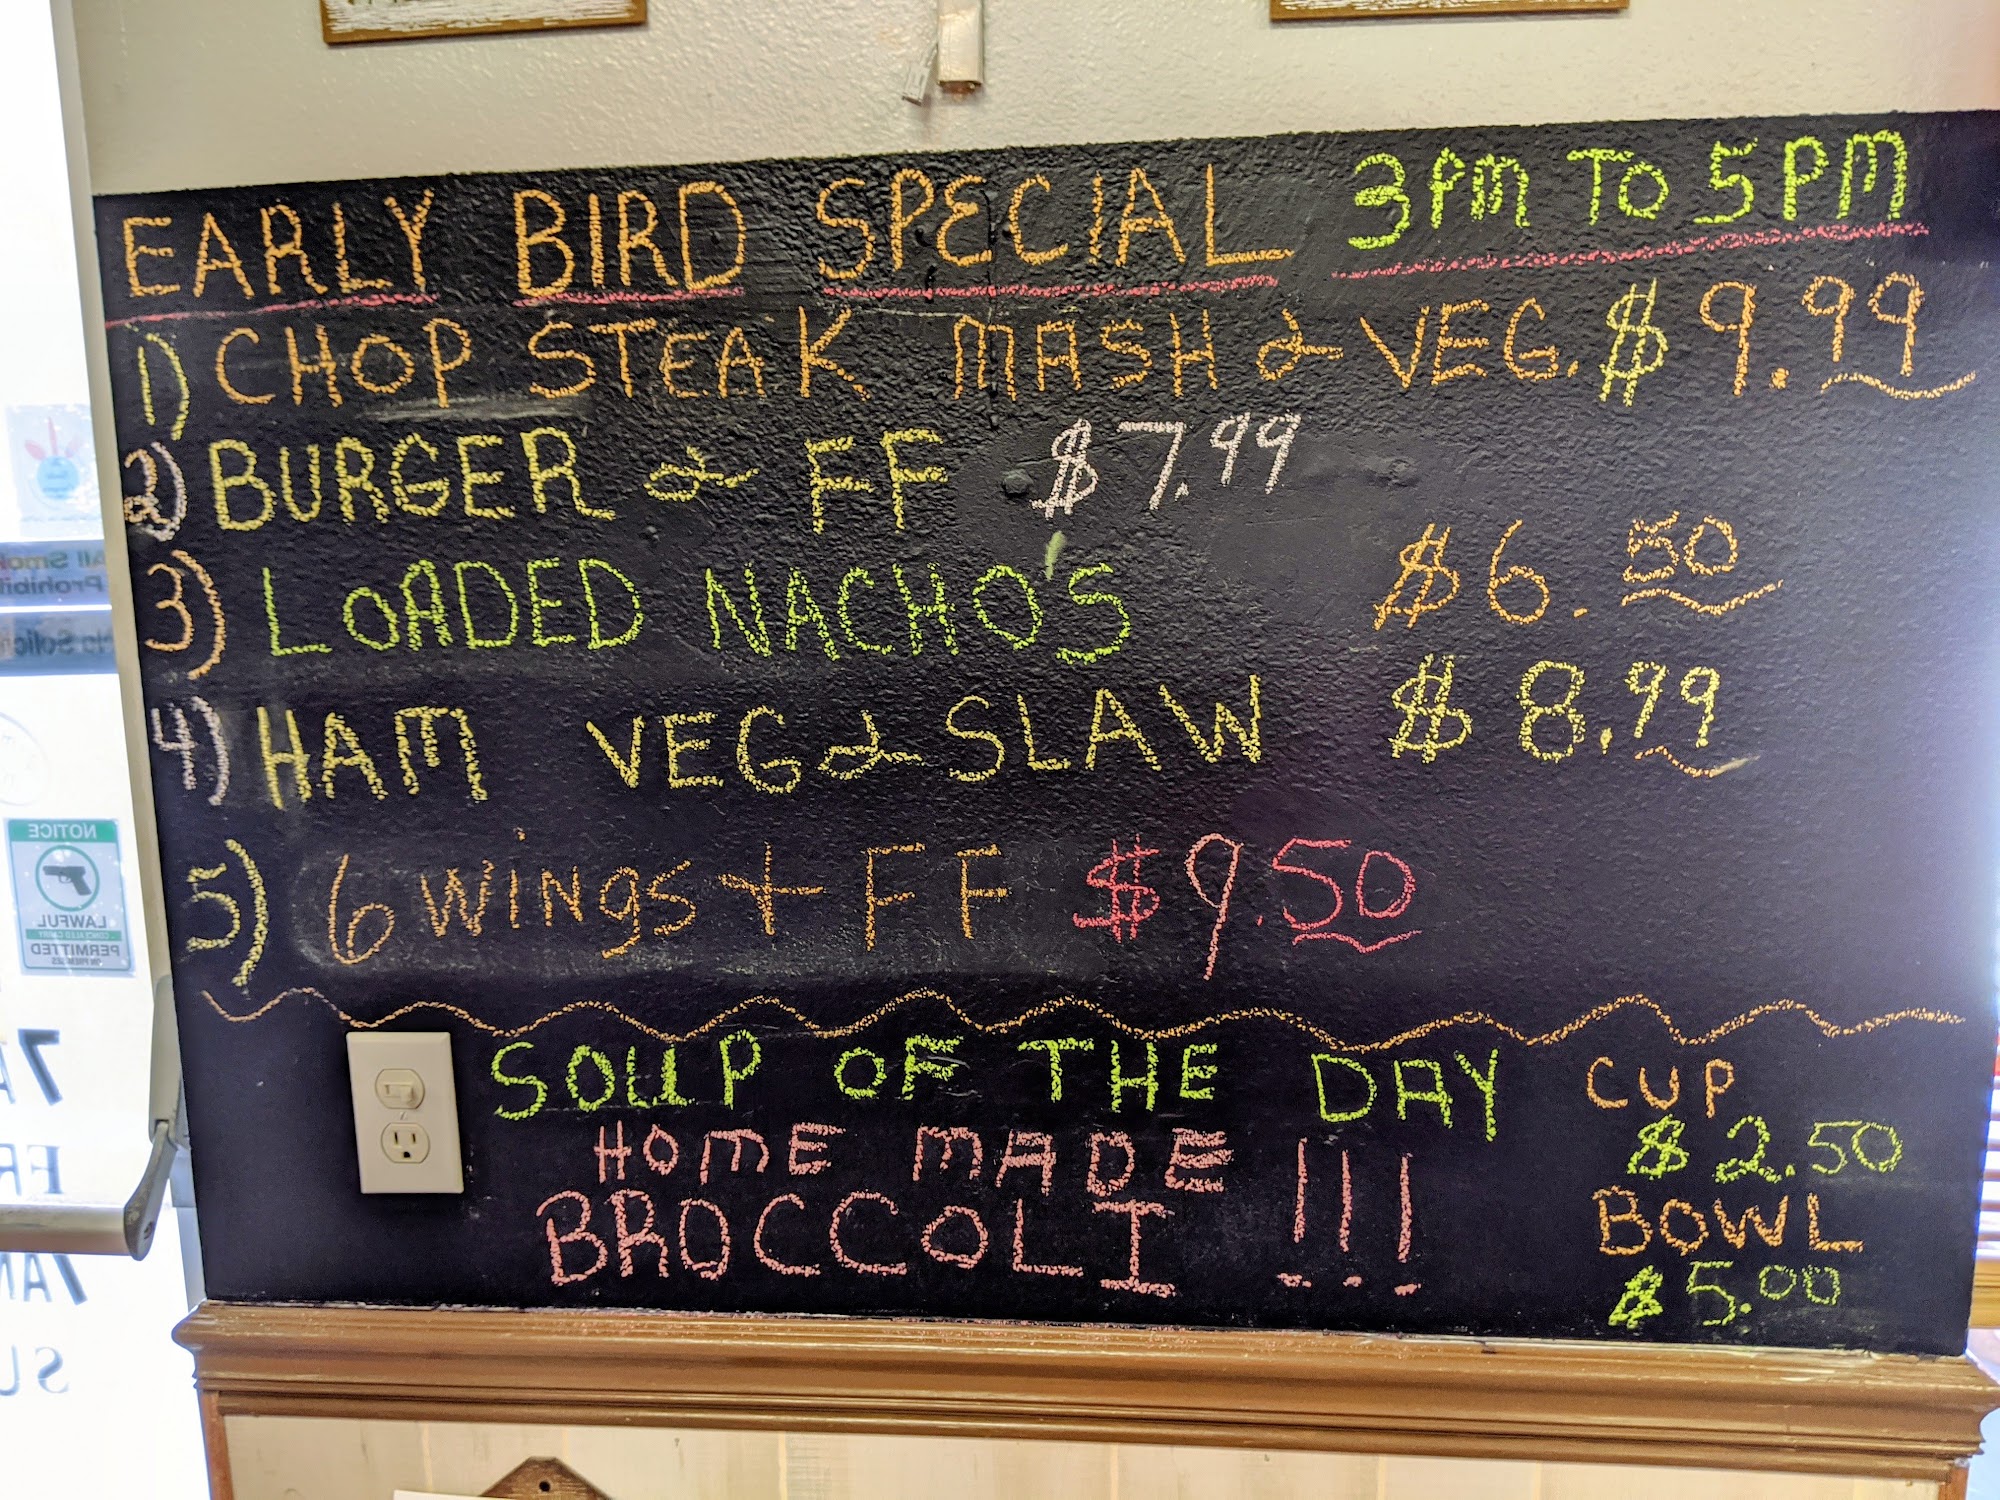 EARLY BIRD SPECIAL 3PM TO 5PM
1) CHOP STEAK MASH & VEG. $9.99
2) BURGER & FF $7.99
3) LOADED NACHO'S $6.50
4) HAM VEG & SLAW $8.99
5) 6 WiNgS + FF $9.50
SOUP OF THE DAY
HOME MADE
BROCCOLI !!!
CUP
$2.50
BOWL
$5.00
NOTICE
LAWFUL
CONCEALED CARRY
PERMITTED
ON PREMISES